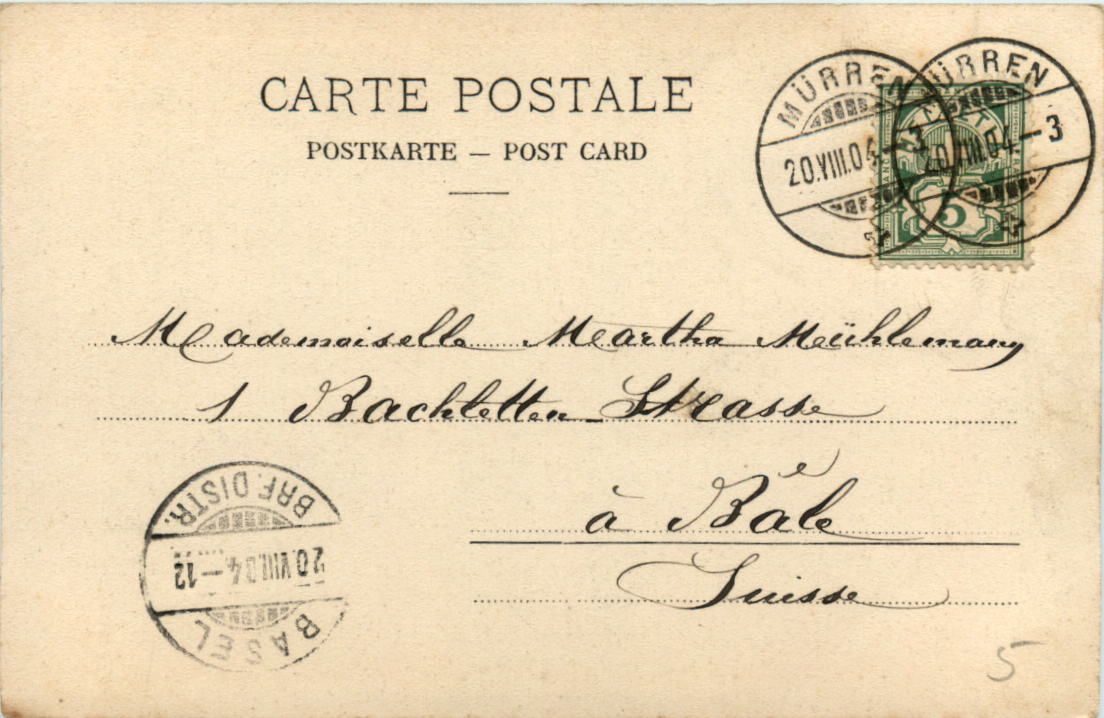 CARTE POSTALE
POSTKARTE — POST CARD
MÜRREN
20.VIII.04.–3
MÜRREN
20.VIII.04.–3
5
Mademoiselle Martha Mühlemann
1 Bachletten-Strasse
à Bâle
Suisse
BRF. DISTR.
20.VIII.04.–12
BASEL
5